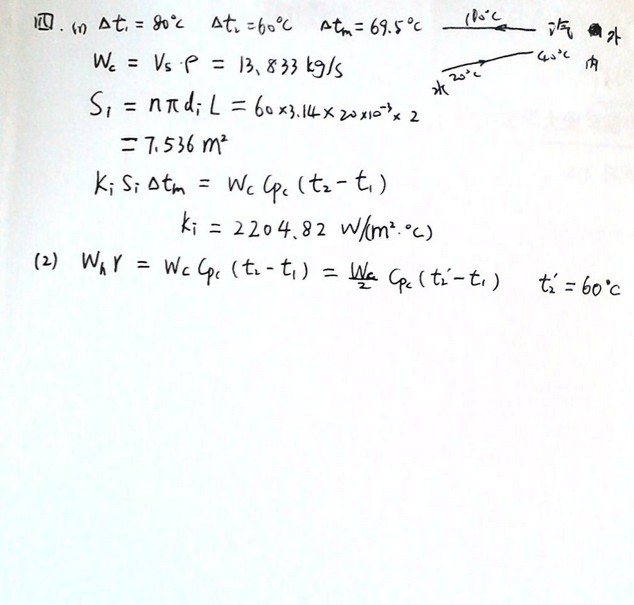 四.(1) Δt₁ = 80°C Δt₂ = 60°C Δtm = 69.5°C 100°C 汽 外
水 20°C 40°C 内
Wc = Vs·ρ = 13.833 kg/s
Si = nπdiL = 60×3.14×20×10⁻³×2
= 7.536 m²
Ki Si Δtm = Wc Cpc (t₂-t₁)
Ki = 2204.82 W/(m²·°C)
(2) Whr = Wc Cpc (t₂-t₁) = Wc/2 Cpc (t₂'-t₁) t₂' = 60°C